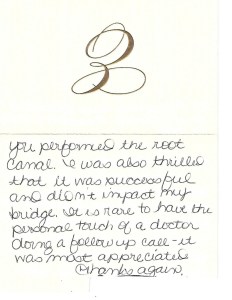 B
you performed the root
canal. I was also thrilled
that it was successful
and didn't impact my
bridge. It is rare to have the
personal touch of a doctor
doing a follow up call - it
was most appreciated
Thanks again.